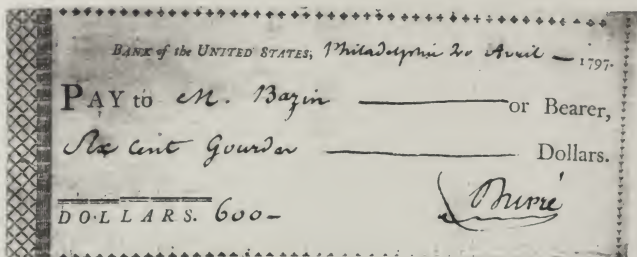 BANK of the UNITED STATES, Philadelphie 20 Avril — 1797.
PAY to M. Bazin ——— or Bearer,
Six cent Gourdes ——— Dollars.
DOLLARS. 600–